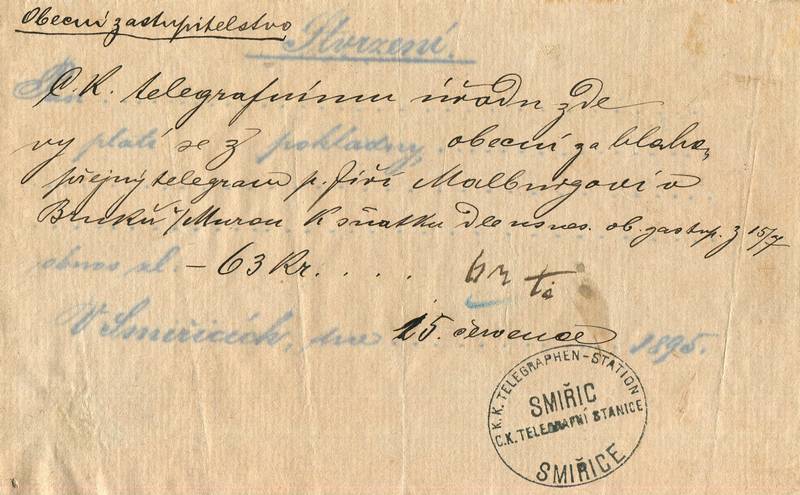 Obecní zastupitelstvo
Stvrzení.
C. K. telegrafnímu úřadu zde
vy platí se z pokladny obecní za blaho-
přejný telegram p. Jiří Malburgovi v
Brucku n/Murou k sňatku dle usnes. ob. zastup. z 15/7
obnos zl. – 63 Kr. . . .
V Smiřicích, dne 15. července 1895.
C. K. K. TELEGRAPHEN-STATION
SMIŘIC
C.K. TELEGRAFNÍ STANICE
SMIŘICE